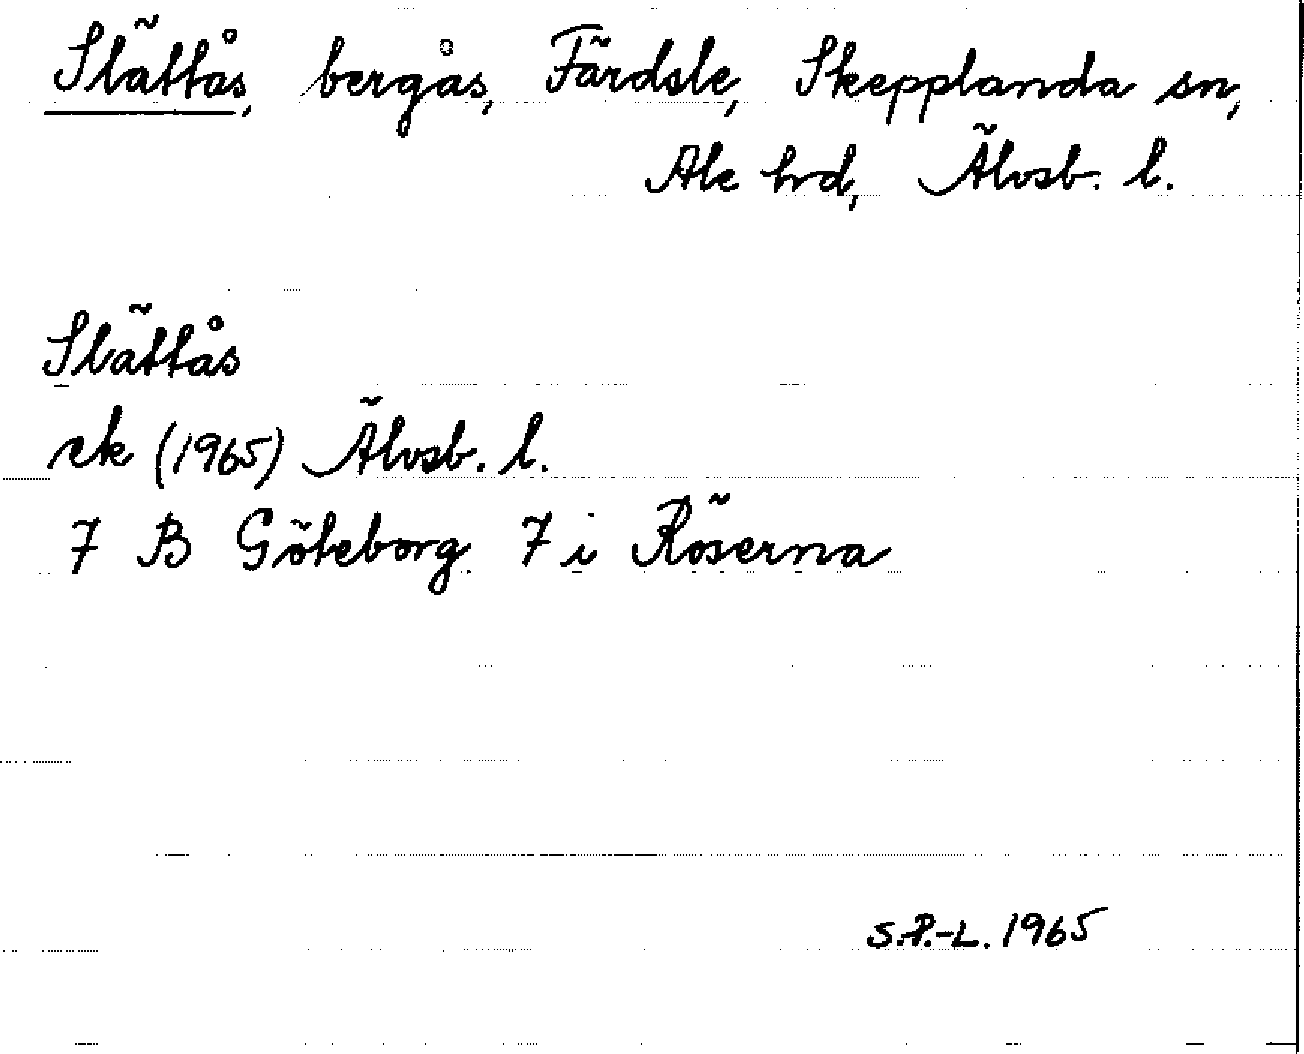 Slättås, bergås, Färdsle, Skepplanda sn,
Ale hrd, Älvsb. l.
Slättås
ek (1965) Älvsb. l.
7 B Göteborg 7 i Röserna
S.P.-L. 1965